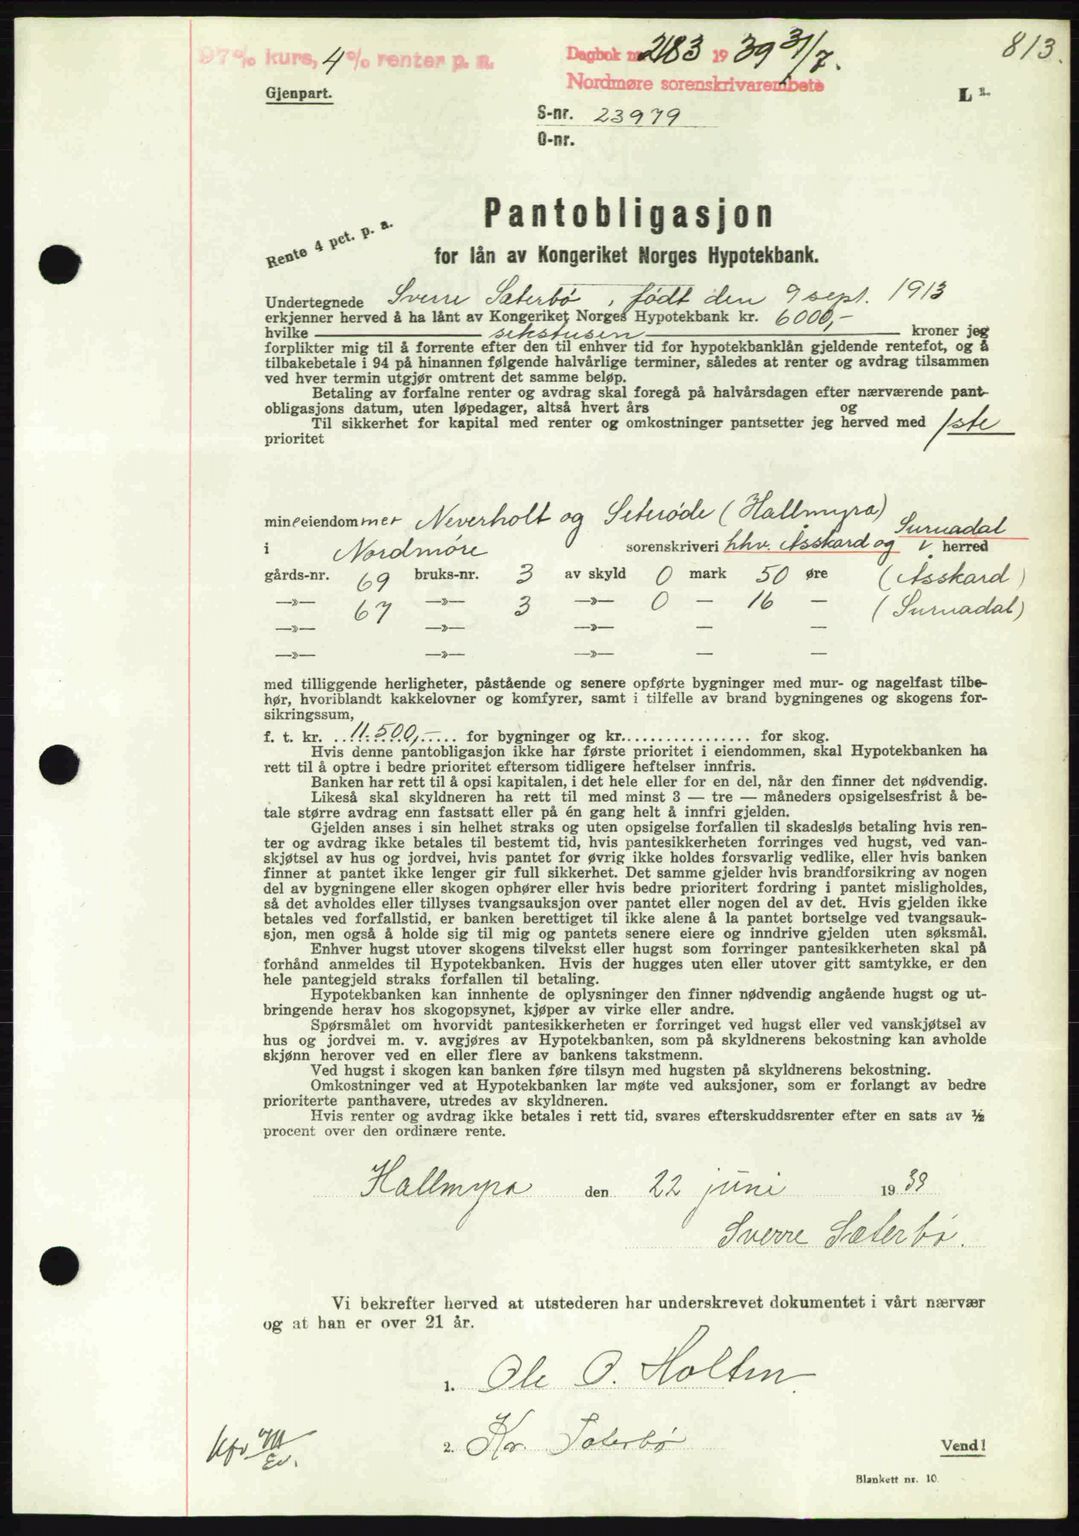 97% kurs, 4% renter p. a.
Dagbok nr. 2183 1939 31/7.
Nordmøre sorenskrivarembete
813.
Gjenpart.
L
S-nr. 23979
O-nr.
Pantobligasjon
Rente 4 pct. p. a.
for lån av Kongeriket Norges Hypotekbank.
Undertegnede Sverre Sæterbø, født den 9 sept. 1913
erkjenner herved å ha lånt av Kongeriket Norges Hypotekbank kr. 6000,-
hvilke sekstusen kroner jeg
forplikter mig til å forrente efter den til enhver tid for hypotekbanklån gjeldende rentefot, og å
tilbakebetale i 94 på hinannen følgende halvårlige terminer, således at renter og avdrag tilsammen
ved hver termin utgjør omtrent det samme beløp.
Betaling av forfalne renter og avdrag skal foregå på halvårsdagen efter nærværende pant-
obligasjons datum, uten løpedager, altså hvert års og
Til sikkerhet for kapital med renter og omkostninger pantsetter jeg herved med 1ste
prioritet
mine eiendommer Neverholt og Seterøde (Hallmyra)
i Nordmøre sorenskriveri hhv. Åsskard og Surnadal herred
gårds-nr. 69 bruks-nr. 3 av skyld 0 mark 50 øre (Åsskard)
—»— 67 —»— 3 —»— 0 — 16 — (Surnadal)
—»— —»— —»— — —
—»— —»— —»— — —
med tilliggende herligheter, påstående og senere opførte bygninger med mur- og nagelfast tilbe-
hør, hvoriblandt kakkelovner og komfyrer, samt i tilfelle av brand bygningenes og skogens for-
sikringssum,
f. t. kr. 11.500,- for bygninger og kr. ................. for skog.
Hvis denne pantobligasjon ikke har første prioritet i eiendommen, skal Hypotekbanken ha
rett til å optre i bedre prioritet eftersom tidligere heftelser innfris.
Banken har rett til å opsi kapitalen, i det hele eller for en del, når den finner det nødvendig.
Likeså skal skyldneren ha rett til med minst 3 — tre — måneders opsigelsesfrist å be-
tale større avdrag enn fastsatt eller på én gang helt å innfri gjelden.
Gjelden anses i sin helhet straks og uten opsigelse forfallen til skadesløs betaling hvis ren-
ter og avdrag ikke betales til bestemt tid, hvis pantesikkerheten forringes ved hugst, ved van-
skjøtsel av hus og jordvei, hvis pantet for øvrig ikke holdes forsvarlig vedlike, eller hvis banken
finner at pantet ikke lenger gir full sikkerhet. Det samme gjelder hvis brandforsikring av nogen
del av bygningene eller skogen ophører eller hvis bedre prioritert fordring i pantet misligholdes,
så det avholdes eller tillyses tvangsauksjon over pantet eller nogen del av det. Hvis gjelden ikke
betales ved forfallstid, er banken berettiget til ikke alene å la pantet bortselge ved tvangsauk-
sjon, men også å holde sig til mig og pantets senere eiere og inndrive gjelden uten søksmål.
Enhver hugst utover skogens tilvekst eller hugst som forringer pantesikkerheten skal på
forhånd anmeldes til Hypotekbanken. Hvis der hugges uten eller utover gitt samtykke, er den
hele pantegjeld straks forfallen til betaling.
Hypotekbanken kan innhente de oplysninger den finner nødvendig angående hugst og ut-
bringende herav hos skogopsynet, kjøper av virke eller andre.
Spørsmålet om hvorvidt pantesikkerheten er forringet ved hugst eller ved vanskjøtsel av
hus og jordvei m. v. avgjøres av Hypotekbanken, som på skyldnerens bekostning kan avholde
skjønn herover ved en eller flere av bankens takstmenn.
Ved hugst i skogen kan banken føre tilsyn med hugsten på skyldnerens bekostning.
Omkostninger ved at Hypotekbanken lar møte ved auksjoner, som er forlangt av bedre
prioriterte panthavere, utredes av skyldneren.
Hvis renter og avdrag ikke betales i rett tid, svares efterskuddsrenter efter en sats av ½
procent over den ordinære rente.
Hallmyra den 22 juni 1939
Sverre Sæterbø.
Vi bekrefter herved at utstederen har underskrevet dokumentet i vårt nærvær
og at han er over 21 år.
1. Ole O. Holten
2. Kr. Sæterbø
Vend!
Blankett nr. 10.